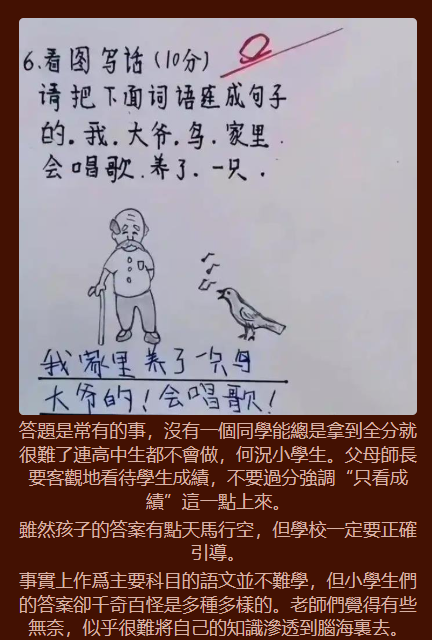 6.看图写话(10分)
请把下面词语连成句子
的。我.大爷.鸟.家里.
会唱歌.养了.一只.
我家里养了一只鸟
大爷的！会唱歌！
答題是常有的事，沒有一個同學能總是拿到全分就
很難了連高中生都不會做，何況小學生。父母師長
要客觀地看待學生成績，不要過分強調“只看成
績”這一點上來。
雖然孩子的答案有點天馬行空，但學校一定要正確
引導。
事實上作爲主要科目的語文並不難學，但小學生們
的答案卻千奇百怪是多種多樣的。老師們覺得有些
無奈，似乎很難將自己的知識滲透到腦海裏去。